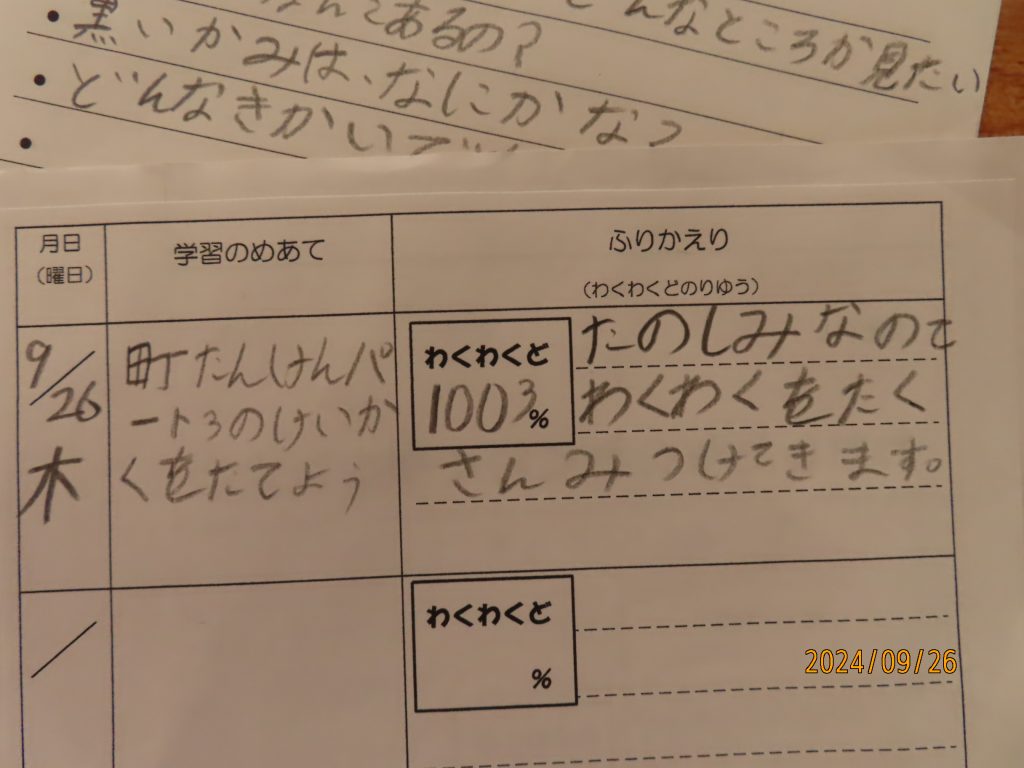 なんてあるの?
どんなところか見たい
・黒いかみは、なにかな?
・どんなきかいで
・
月日
(曜日)
学習のめあて
ふりかえり
(わくわくどのりゆう)
9/26
木
町たんけんパ
ート3のけいか
くをたてよう
わくわくど
1003%
たのしみなので
わくわくをたく
さんみつけてきます。
/
わくわくど
%
2024/09/26